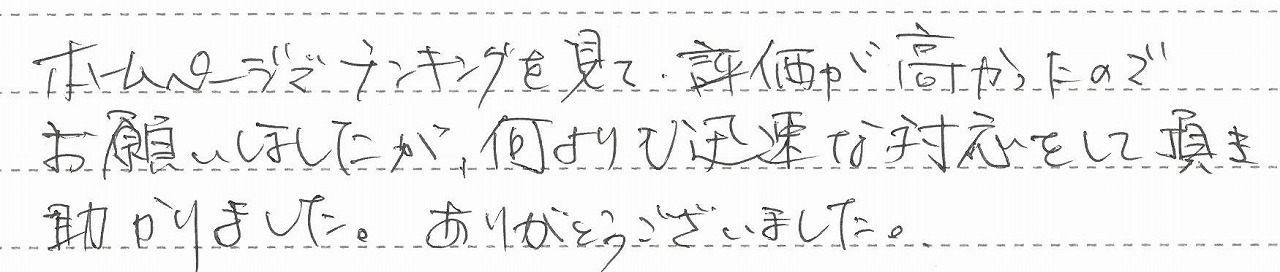 ホームページでランキングを見て、評価が高かったので
お願いしましたが、何よりも迅速な対応をして頂き
助かりました。ありがとうございました。